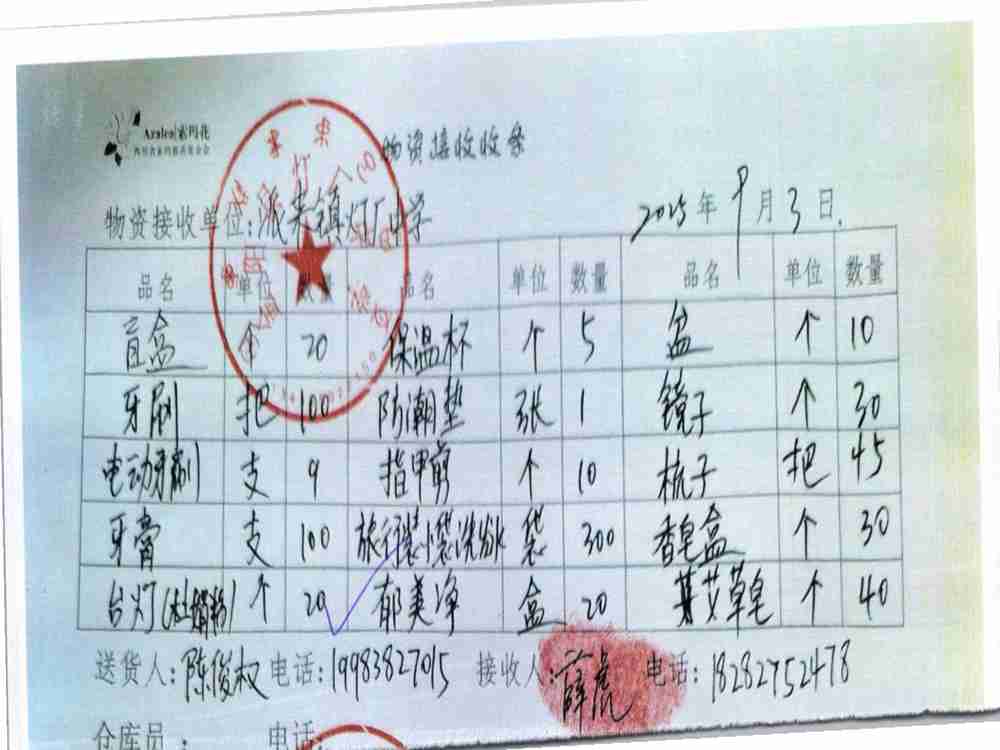 Azalea|索玛花
物资接收收条
物资接收单位:派来镇灯厂中学 2025年9月3日.
品名 单位 数量 品名 单位 数量 品名 单位 数量
盲盒 个 20 保温杯 个 5 盆 个 10
牙刷 把 100 防潮垫 张 1 镜子 个 30
电动牙刷 支 9 指甲剪 个 10 梳子 把 45
牙膏 支 100 旅行装小袋洗 袋 300 香皂盒 个 30
台灯(杜娟粉) 个 20 郁美净 盒 20 艾草皂 个 40
送货人:陈俊权 电话:19983827015 接收人:薛虎 电话:18282752478
仓库员: 电话: